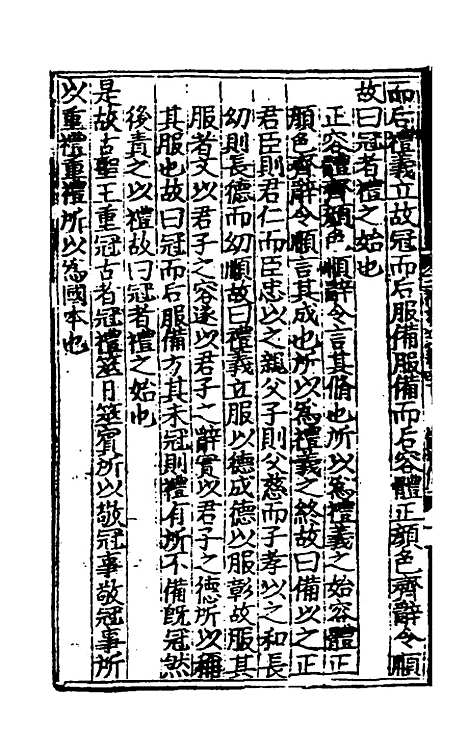 而后禮義立故冠而后服備服備而后容體正顔色齊辭令順
故曰冠者禮之始也
正容體齊顔色順辭令言其脩也所以為禮義之始容體正
顔色齊辭令順言其成也所以為禮義之終故曰備以之正
君臣則君仁而臣忠以之親父子則父慈而子孝以之和長
幼則長德而幼順故曰禮義立服以德成德以服彰故服其
服者文以君子之容遂以君子之辭實以君子之徳所以稱
其服也故曰冠而后服備方其未冠則禮有所不備旣冠然
後責之以禮故曰冠者禮之始也
是故古聖王重冠古者冠禮筮日筮賓所以敬冠事敬冠事所
以重禮重禮所以為國本也